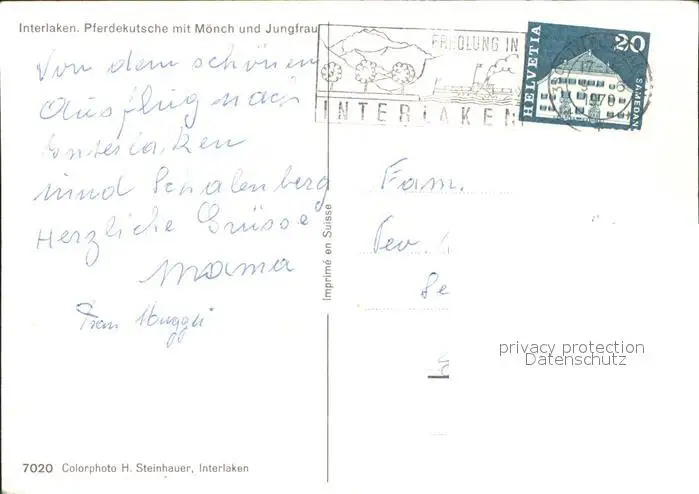 Interlaken. Pferdekutsche mit Mönch und Jungfrau
ERHOLUNG IN
INTERLAKEN
HELVETIA
20
SAMEDAN
1970
Von dem schönen
Ausflug nach
Interlaken
und Schalenberg
Herzliche Grüsse
Mama
Frau
Fam.
Imprimé en Suisse
privacy protection
Datenschutz
7020 Colorphoto H. Steinhauer, Interlaken